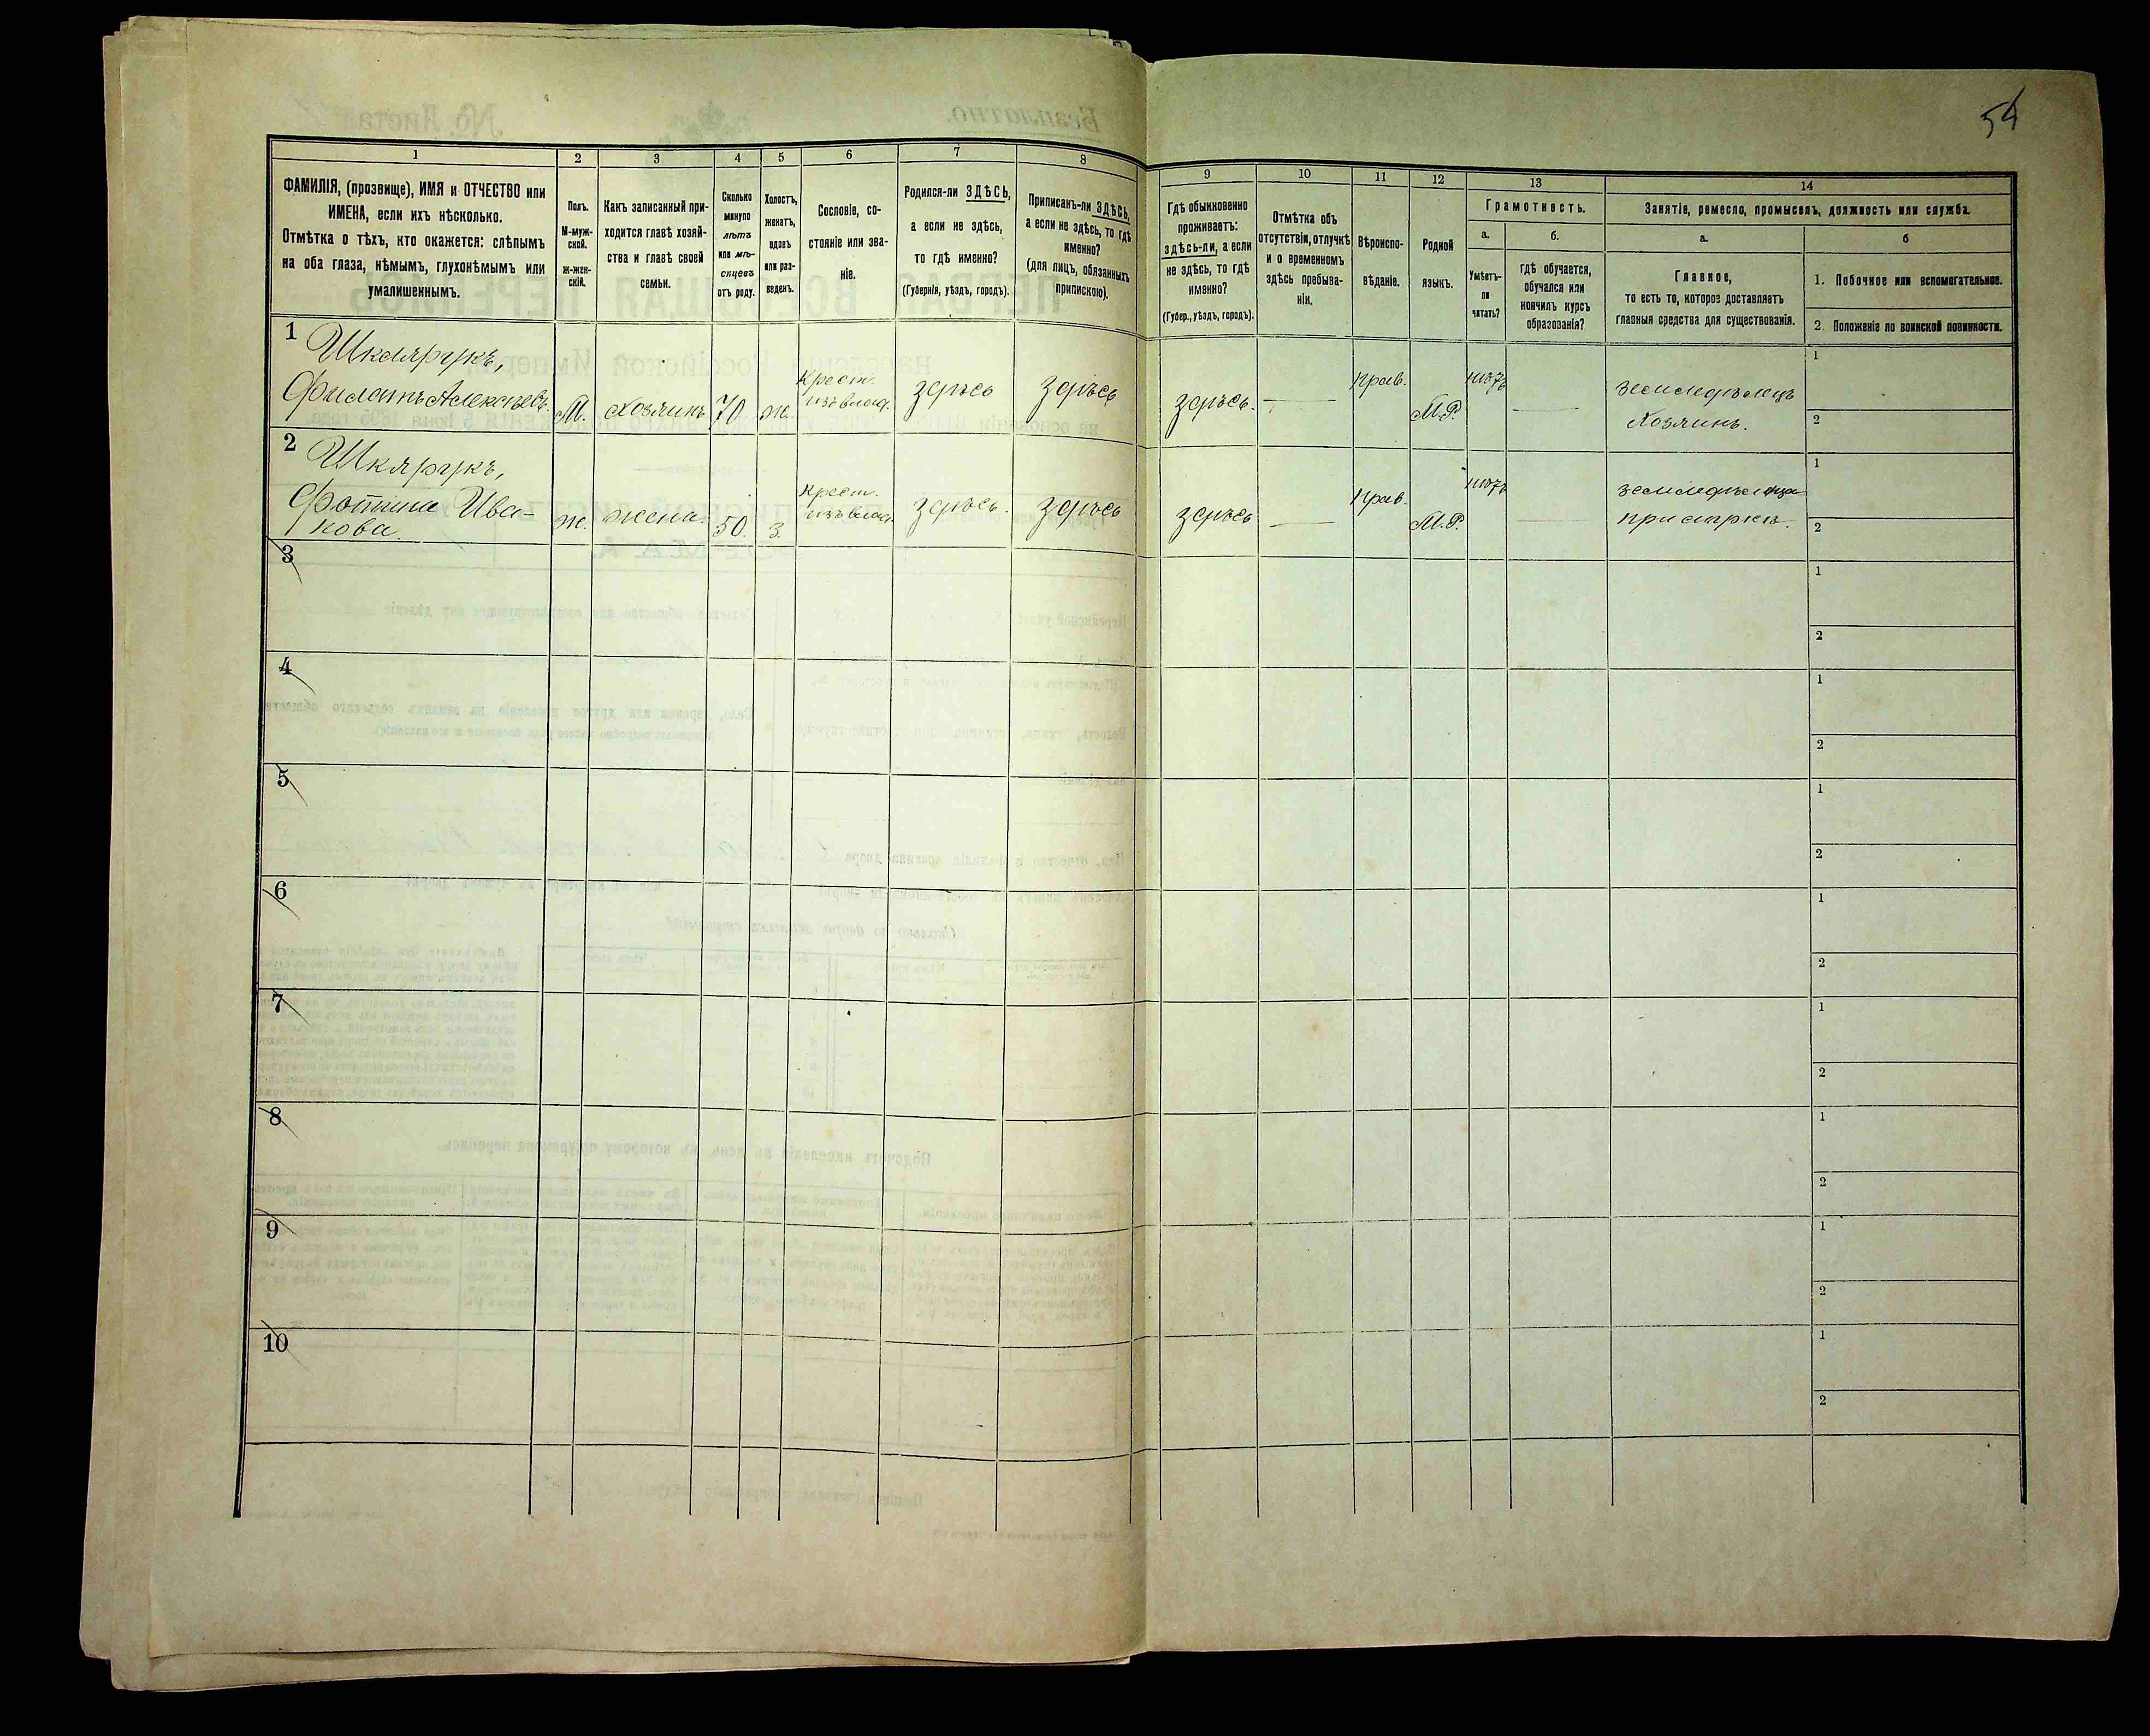 54
1
2
3
4
5
6
7
8
9
10
11
12
13
14
ФАМИЛІЯ, (прозвище), ИМЯ и ОТЧЕСТВО или
ИМЕНА, если ихъ нѣсколько.
Отмѣтка о тѣхъ, кто окажется: слѣпымъ
на оба глаза, нѣмымъ, глухонѣмымъ или
умалишеннымъ.
Полъ.
М-муж-
ской.
ж-жен-
скій.
Какъ записанный при-
ходится главѣ хозяй-
ства и главѣ своей
семьи.
Сколько
минуло
лѣтъ
или мѣ-
сяцевъ
отъ роду.
Холостъ,
женатъ,
вдовъ
или раз-
веденъ.
Сословіе, со-
стояніе или зва-
ніе.
Родился-ли ЗДѢСЬ,
а если не здѣсь,
то гдѣ именно?
(Губернія, уѣздъ, городъ).
Приписанъ-ли ЗДѢСЬ,
а если не здѣсь, то гдѣ
именно?
(для лицъ, обязанныхъ
припискою).
Гдѣ обыкновенно
проживаетъ:
здѣсь-ли, а если
не здѣсь, то гдѣ
именно?
(Губер., уѣздъ, городъ).
Отмѣтка объ
отсутствіи, отлучкѣ
и о временномъ
здѣсь пребыва-
ніи.
Вѣроиспо-
вѣданіе.
Родной
языкъ.
Грамотность.
а.
Умѣетъ-
ли
читать?
б.
гдѣ обучается,
обучался или
кончилъ курсъ
образованія?
Занятіе, ремесло, промыселъ, должность или служба.
а.
Главное,
то есть то, которое доставляетъ
главныя средства для существованія.
б
1. Побочное или вспомогательное.
2. Положеніе по воинской повинности.
1
Шкляругкъ,
Филатъ Алексѣевъ.
М.
Хозяинъ
70
ж.
Крест.
изъ влад.
здѣсь
здѣсь
здѣсь.
Прав.
М.Р.
нѣтъ
земледѣлецъ
Хозяинъ.
1
2
2
Шкярукъ,
Фотина Ива-
нова.
ж.
жена.
50.
з.
Крест.
изъ влад.
здѣсь.
здѣсь
здѣсь
Прав.
М.Р.
нѣтъ
1
2
3
1
2
4
1
2
5
1
2
6
1
2
7
1
2
8
1
2
9
1
2
10
1
2